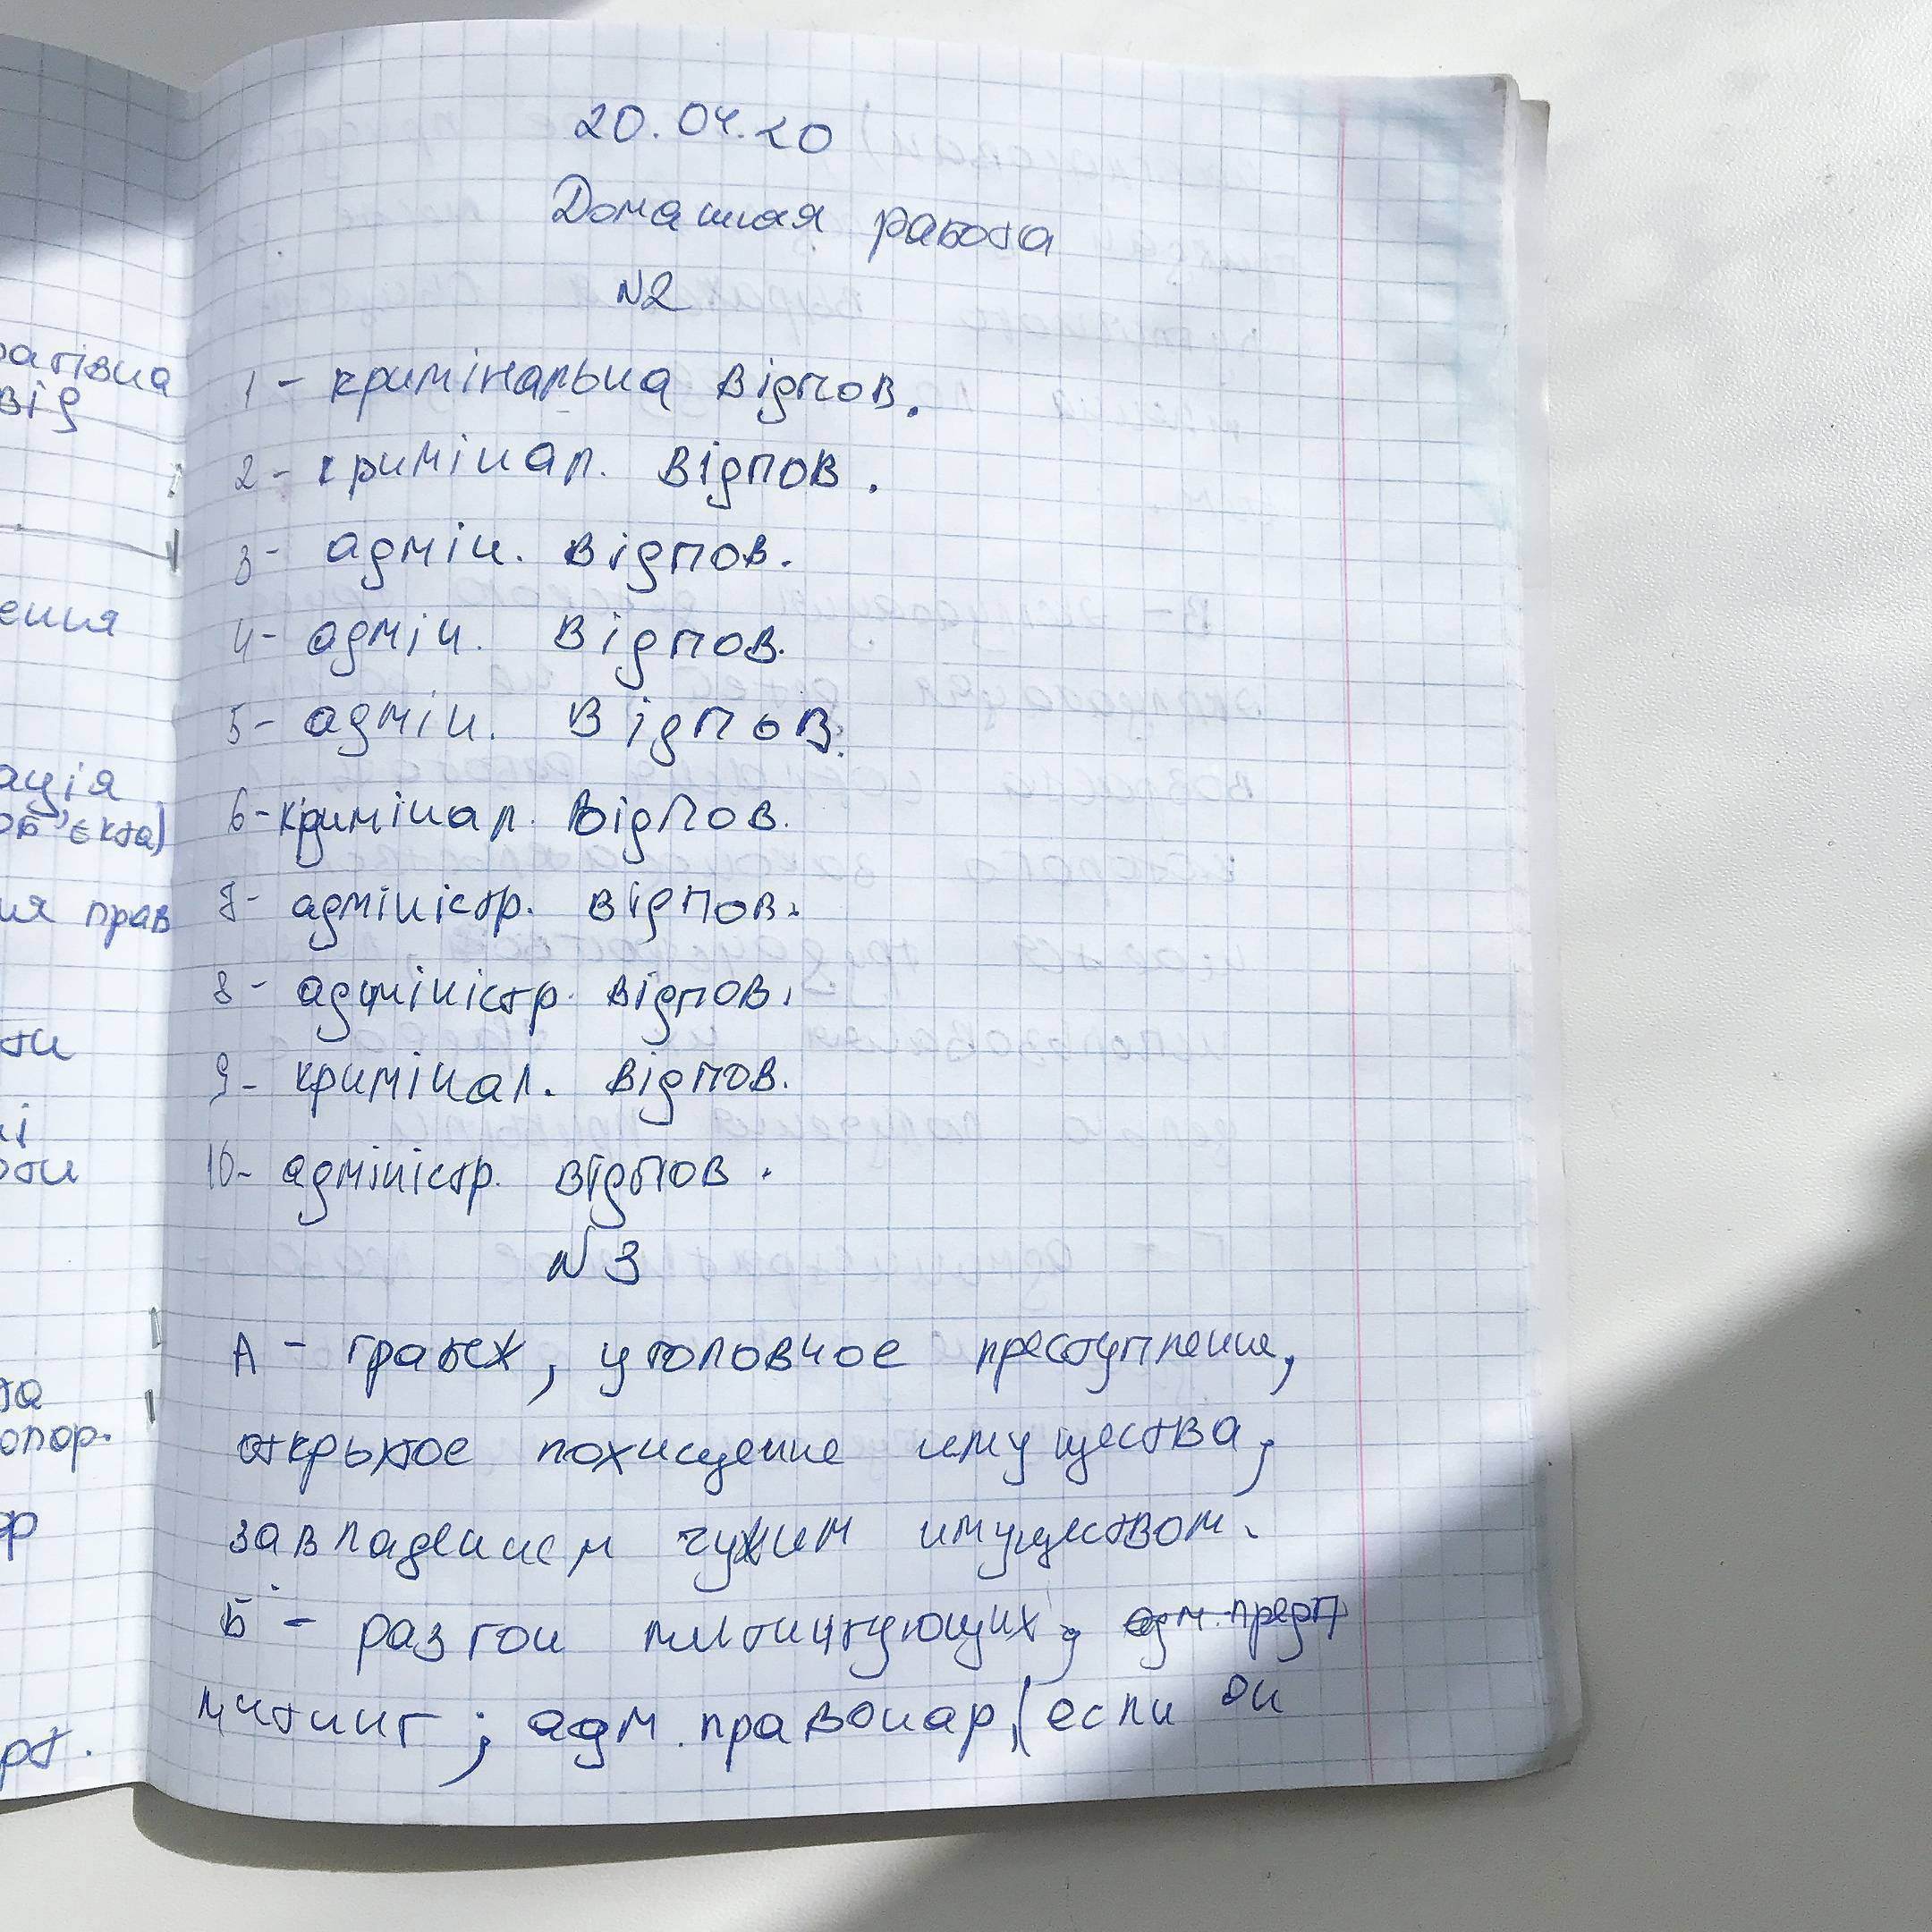 20.04.20
Домашняя работа
N2
1 - кримінальна відпов.
2 - кримінал. відпов.
3 - адмін. відпов.
4 - адмін. відпов.
5 - адмін. відпов.
6 - кримінал. відпов.
7 - адміністр. відпов.
8 - адміністр. відпов.
9 - кримінал. відпов.
10 - адміністр. відпов.
N3
А - грабеж, уголовное преступление,
открытое похищение имущества,
завладением чужим имуществом.
Б - разгон митингующих, адм. предп
митинг; адм. правонар. (если он
ративна
від
ення
ація
об'єкта)
ия прав
ти
і
оти
та
опор.
ор
рт.